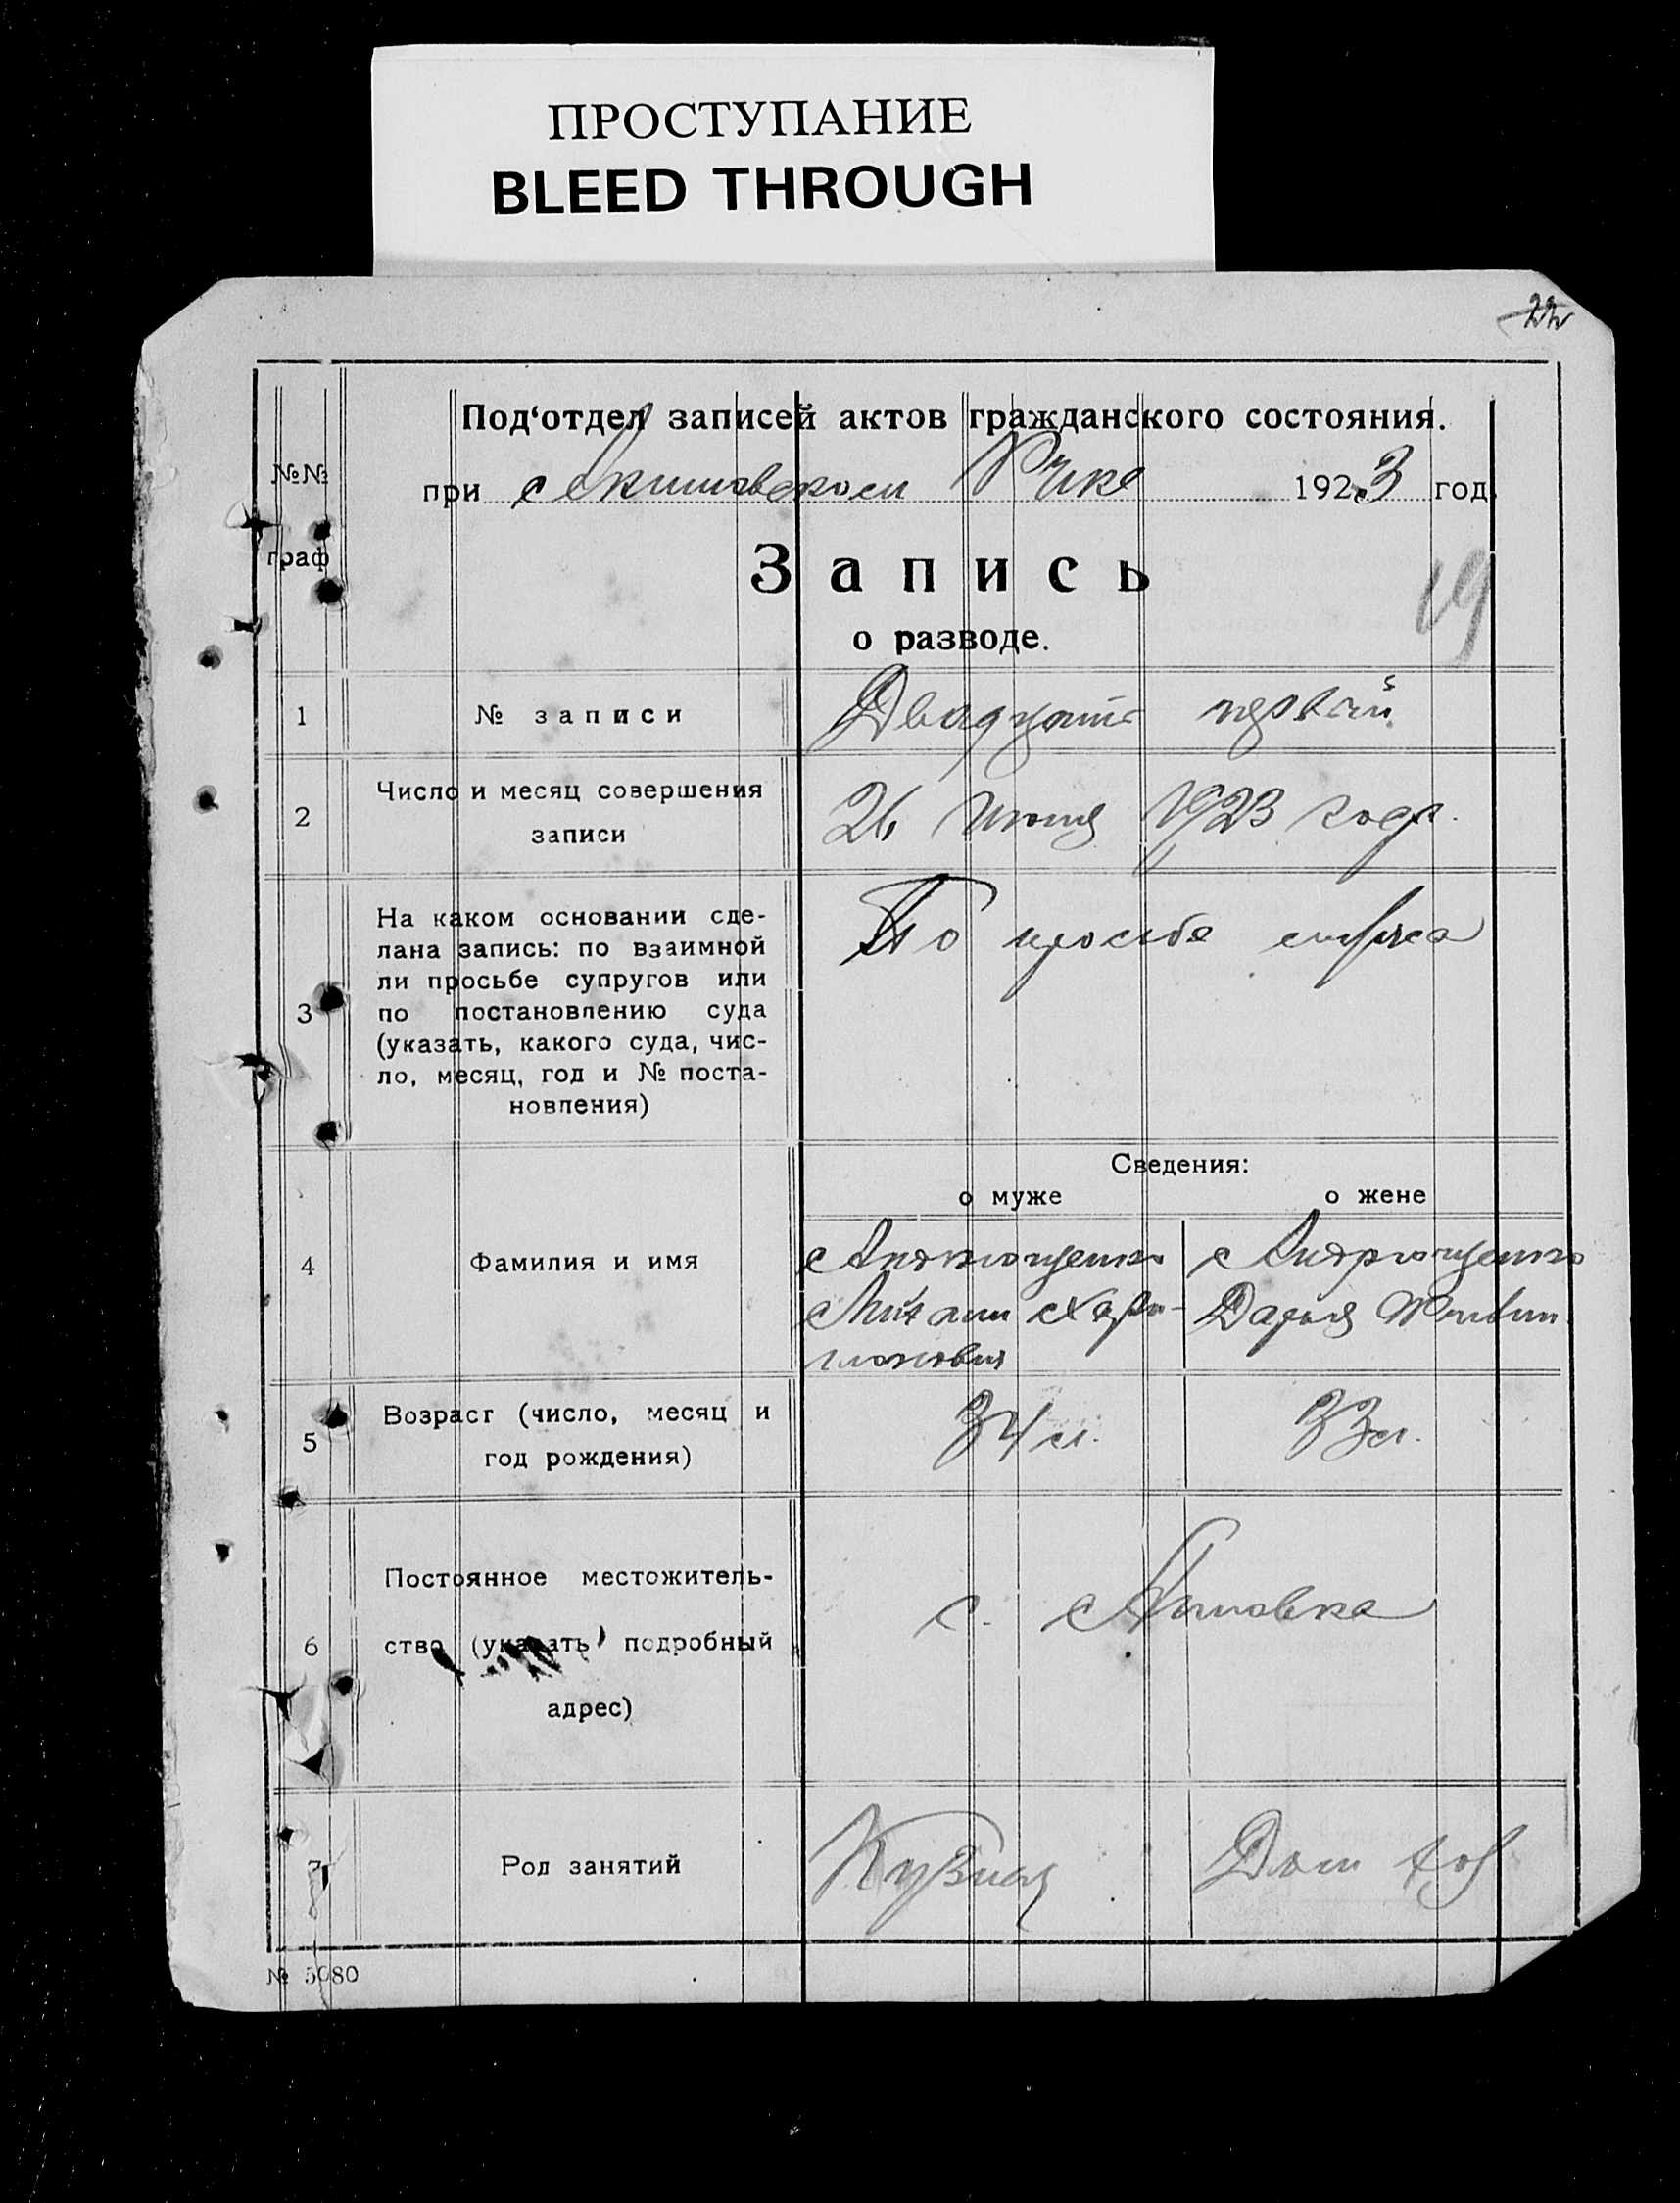 ПРОСТУПАНИЕ
BLEED THROUGH
22
Под‘отдел записей актов гражданского состояния.
№№ граф
при Акимовском Рике 1923 год
Запись
19
о разводе.
1 № записи Двадцать первый
2 Число и месяц совершения
записи
26 июня 1923 года.
3 На каком основании сде-
лана запись: по взаимной
ли просьбе супругов или
по постановлению суда
(указать, какого суда, чис-
ло, месяц, год и № поста-
новления)
По просьбе
Сведения:
о муже о жене
4 Фамилия и имя
Андрющенко Андрющенко
Дарья
5 Возраст (число, месяц и
год рождения)
34 л. 33 л.
6 Постоянное местожитель-
ство (указать подробный
адрес)
с.
7 Род занятий
Кузнец Дом хоз
№ 5080